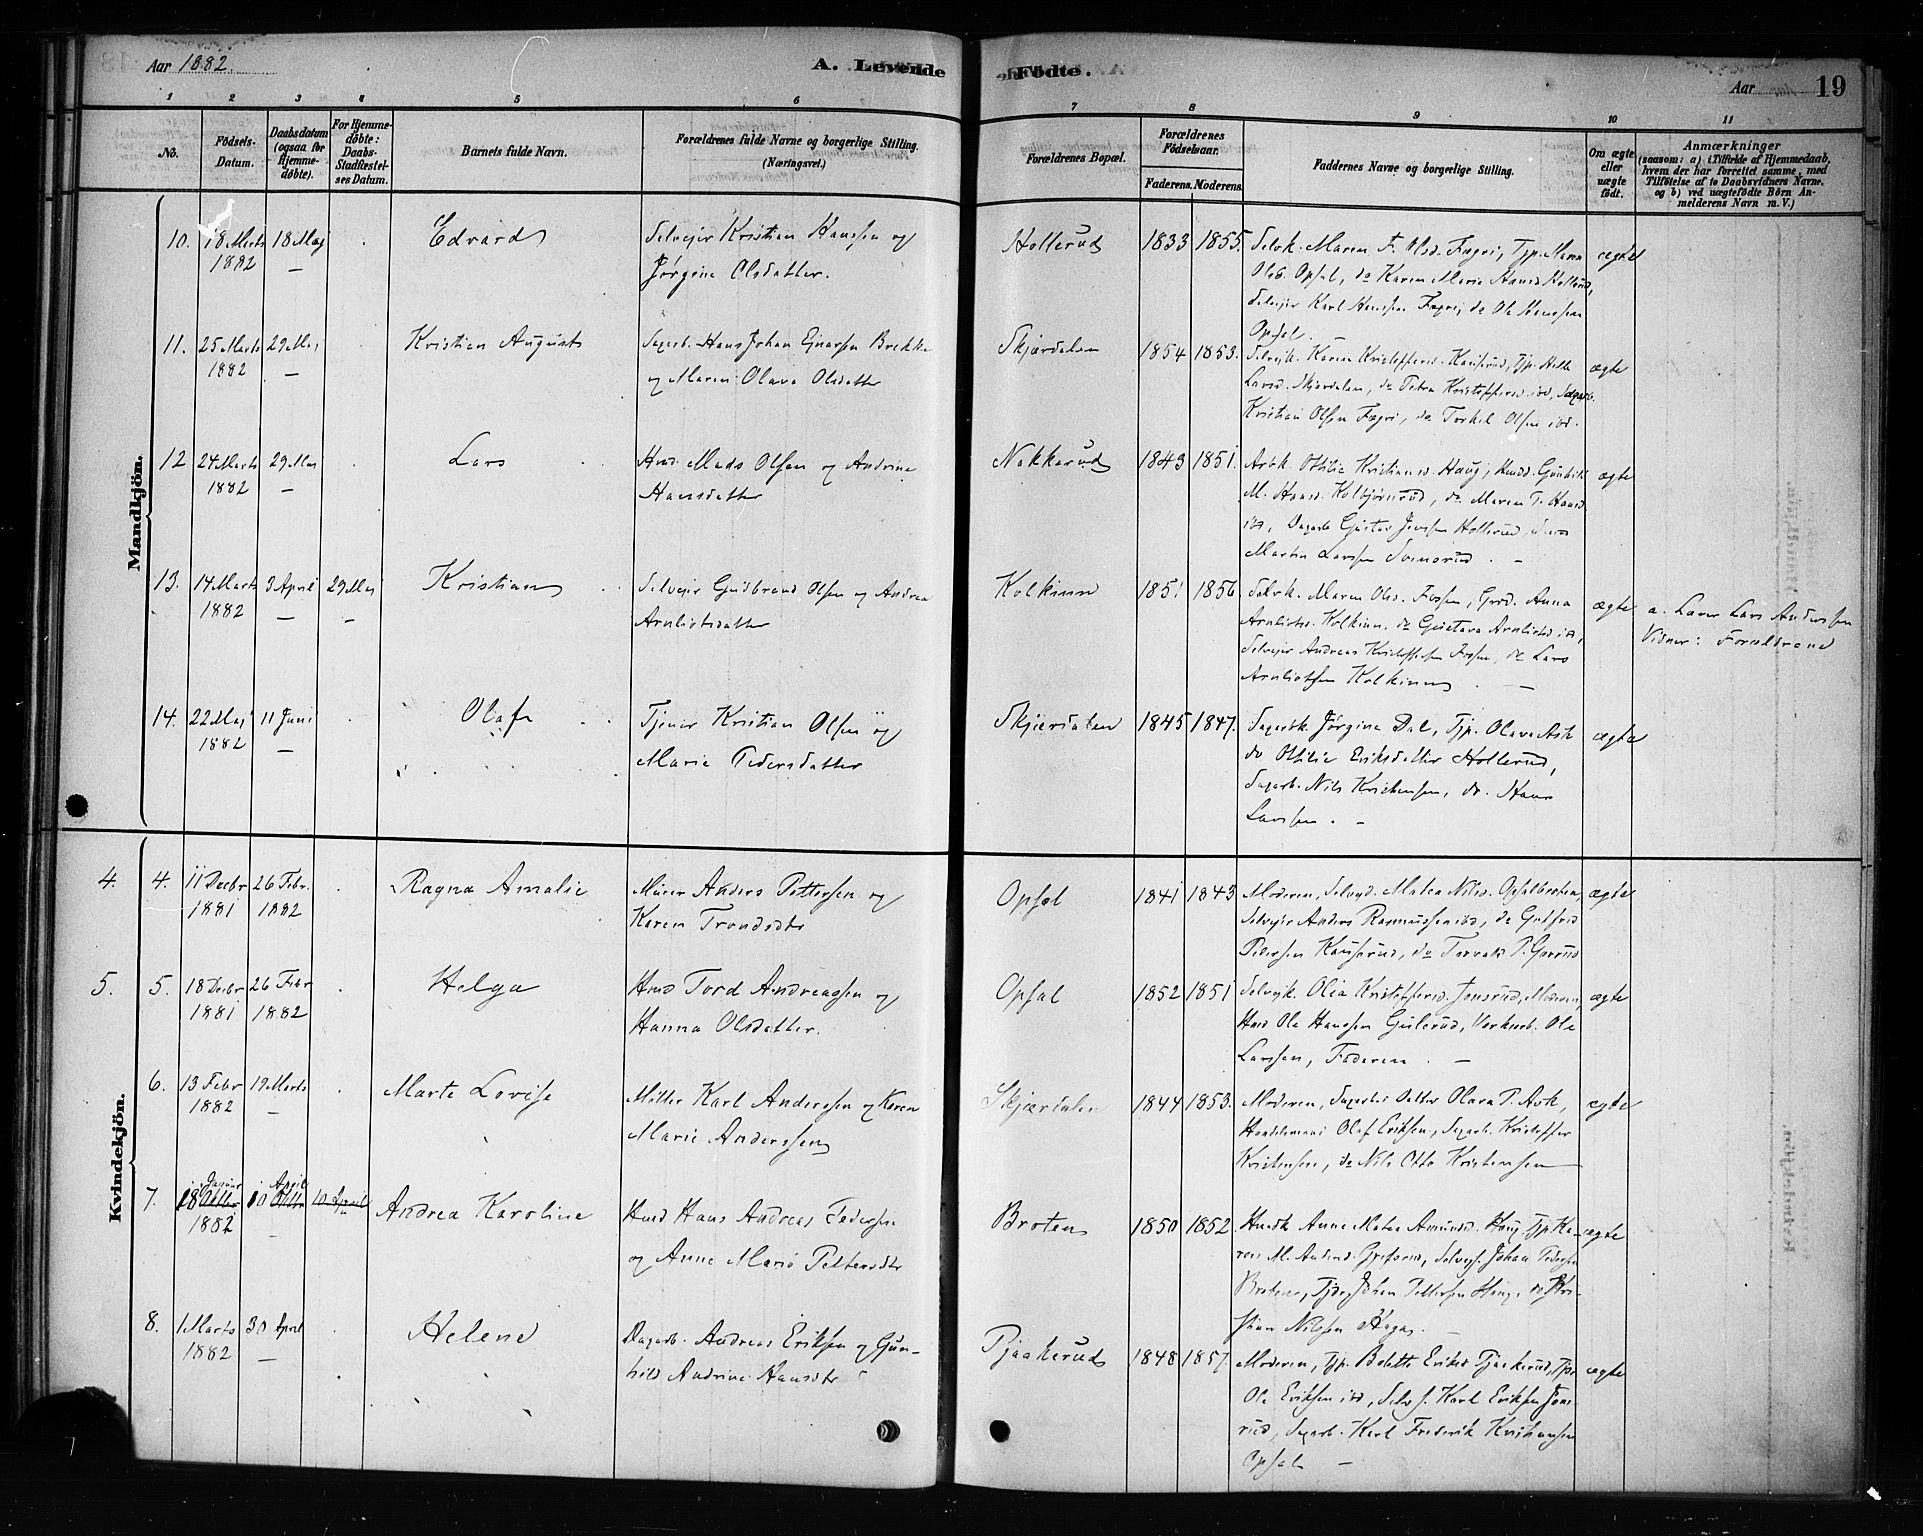 Aar 1882.
A. Levende Fødte.
Aar 19
1 2 3 4 5 6 7 8 9 10 11
No.
Fødsels-Datum.
Daabsdatum (ogsaa for Hjemme-døbte).
For Hjemme-døbte: Daabs-Stadfæstel-ses Datum.
Barnets fulde Navn.
Forældrenes fulde Navne og borgerlige Stilling.
(Næringsvei.)
Forældrenes Bopæl.
Forældrenes Fødselsaar.
Faderens. Moderens.
Faddernes Navne og borgerlige Stilling.
Om ægte eller uægte født.
Anmærkninger
(saasom: a) i Tilfælde af Hjemmedaab,
hvem der har forrettet samme, med
Tilføielse af to Daabsvidners Navne,
og b) ved uægtefødte Børn An-
melderens Navn m. V.)
Mandkjøn.
10. 18 Marts 1882 18 Maj — Edvard
Selvejer Kristian Hanssen og
Jørgine Olsdatter.
Hollerud 1833 1855.
Selvk. Maren F. Olsd. Fægri, Tjp. Maren
Olsd. Opsal, do Karen Marie Hansd. Hollerud,
Selvejer Karl Hanssen Fægri, do Ole Hanssen
Opsal. —
ægte
11. 25 Marts 1882 29 Maj — Kristian August
Sagarb. Hans Johan Brekke
og Maren Olava Olsdatter
Skjærdalen 1854 1853.
Selvejk. Karen Kristoffersd. Tjp. Helle
Larsd. Skjærdalen, do Petra Kristoffersd. ibd, Sagarb.
Kristian Olsen Fægri, do Torkel Olsen ibd.
ægte
12 24 Marts 1882 29 Maj — Lars
Hmd. Mads Olsen og Andrine
Hansdatter
Nakkerud 1843 1851.
Arbk. Othilie Kristiansd. Haug, Hmdd. Gunhild
M. Hansd. Kolbjørnrud, do. Maren T. Hansd.
ibd, Dagarb Gustav Jenssen Hollerud,
Martin Larssen . —
ægte
13. 14 Marts 1882 3 April — 29 Maj — Kristian
Selvejer Gudbrand Olsen og Andrea
Arnliotsdatter
Kolkinn 1851 1856.
Selvk. Maren Olsd. Fossen, Grd. Anna
Arnliotsd. Kolkinn, do Gustava Arnliotsd ibd,
Selvejer Andreas Kristoffersen Fossen, do Lars
Arnliotsen Kolkinn . —
ægte
a. Lærer Lars Anderssen
Vidner: Forældrene
14. 22 Maj 1882 11 Juni — Olaf
Tjener Kristian Olsen og
Marie Pedersdatter
Skjærdalen 1845 1847.
Sagarbk. Jørgine Dal, Tjp. Olava Ask
do Othilie Eriksdatter Hollerud,
Sagarb. Nils Kristensen, do. Hans
Larssen . —
ægte
Kvindekjøn.
4. 4. 11 Decbr 1881 26 Febr. 1882 Ragna Amalie
Murer Anders Pettersen og
Karen Trondsdtr
Opsal 1841 1843
Moderen, Selvejd. Matea Nilsd. Opsalbroten,
Selvejer Anders Rasmussen ibd, do Gulbrand
Pedersen Kauserud, do Torvald P. Gjerrud
ægte
5. 5. 18 Decbr 1881 26 Febr 1882 Helga
Hmd Tord Andreassen og
Hanna Olsdatter.
Opsal 1852 1851
Selvejk. Olia Kristoffersd. Jonsrud, Moderen,
Hmd Ole Hanssen Gulerud, Verksarb. Ole
Larssen, Faderen . —
ægte
6. 13 Febr 1882 19 Marts — Marte Lovise
Møller Karl Anderssen og Karen
Marie Anderssen
Skjærdalen 1844 1853.
Moderen, Datter Olava P. Ask,
Handelsmand Olaf Eriksen, Sagarb. Kristoffer
Kristensen, do Nils Otto Kristensen
ægte
7. 18 Januar 1882 10 April — 10 April Andrea Karoline
Hmd Hans Andreas Pedersen
og Anne Marie Pettersdtr
Broten 1850 1852
Hmdk Anne Matea Amundsd. Haug, Tjp Ka-
ren M. Andersd. Grefsrud, Selvejs. Johan Pedersen
Broten, Johan Pettersen Haug, do Kri-
stian Nilssen Hagas. —
ægte
8. 1 Marts 1882 30 April — Helene
Dagarb. Andreas Eriksen og Gun-
hild Andrine Hansdtr
Pjaakerud 1848 1857.
Moderen, Tjp. Bolette Eriksd Pjaakerud, Tjp.
Ole Eriksen ibd, Selvejs. Karl Eriksen Jons-
rud, Sagarb. Karl Frederik Kristiansen
Opsal —
ægte